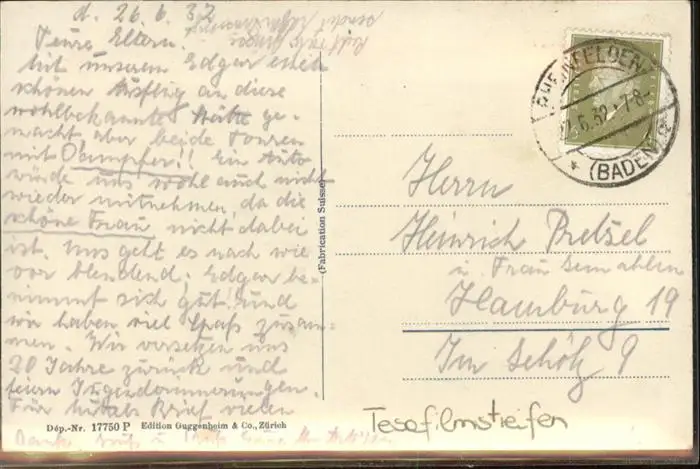 d. 26.6.32
Teure Eltern!
Mit unserem Edgar einen
schönen Ausflug an diese
wohlbekannte Stätte ge-
macht, aber beide Touren
mit Dampfer!! Ein Auto
würde uns wohl auch nicht
wieder mitnehmen, da die
schöne Frau nicht dabei
ist. Uns geht es nach wie
vor blendend; Edgar be-
nimmt sich gut und
wir haben viel Spaß zusam-
men. Wir versetzen uns
20 Jahre zurück und
feiern Jugenderinnerungen.
Für Brief vielen
Dank
Dép.-Nr. 17750 P Edition Guggenheim & Co., Zürich
(Fabrication Suisse)
RHEINFELDEN
6.32.7-8
(BADEN)
Herrn
Heinrich Pretzel
u. Frau Gemahlin
Hamburg 19
Im Gehölz 9
Tesafilmstreifen